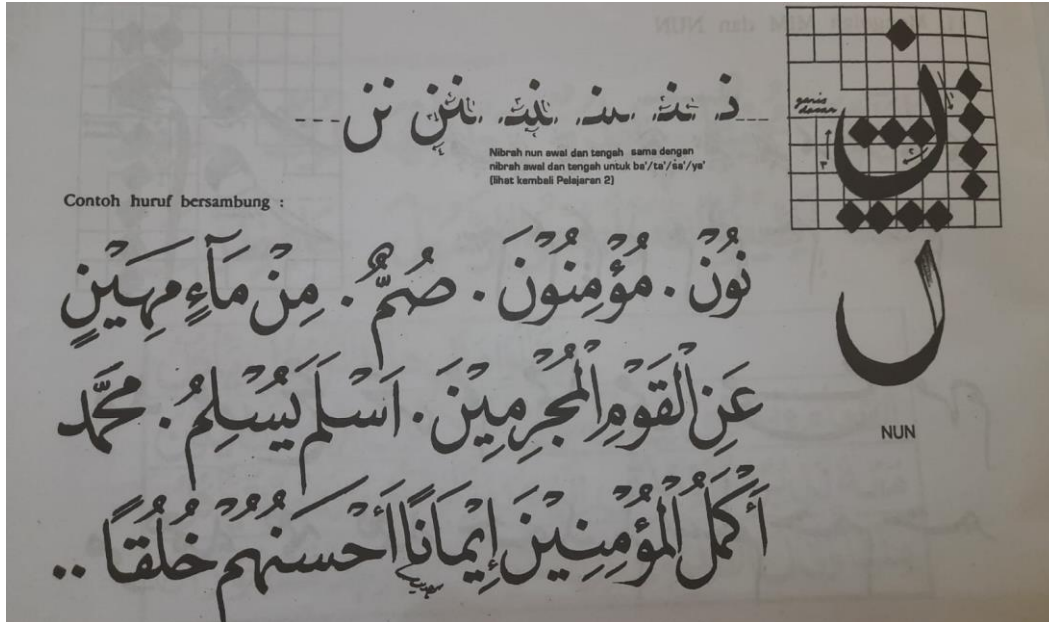 نن
Nibrah nun awal dan tengah sama dengan
nibrah awal dan tengah untuk ba'/ta'/ṡa'/ya'
(lihat kembali Pelajaran 2)
garis
dasar
Contoh huruf bersambung :
نُوْنْ . مُؤْمِنُوْنَ . صُمٌّ . مِنْ مَآءٍ مَهِيْنٍ
عَنِ الْقَوْمِ الْمُجْرِمِيْنَ . اَسْلَمَ يُسْلِمُ . محَمَّد
أَكْمَلُ الْمُؤْمِنِيْنَ إِيْمَانًا أَحْسَنُهُمْ خُلُقًا ..
ن
NUN